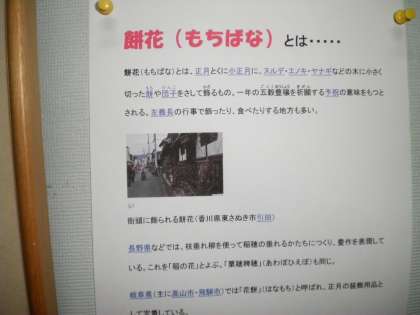 餅花（もちばな）とは・・・・・
餅花（もちばな）とは、正月とくに小正月に、ヌルデ・エノキ・ヤナギなどの木に小さく
切った餅や団子をさして飾るもの。一年の五穀豊穣を祈願する予祝の意味をもつと
される。左義長の行事で飾ったり、食べたりする地方も多い。
街頭に飾られる餅花（香川県東さぬき市引田）
長野県などでは、枝垂れ柳を使って稲穂の垂れるかたちにつくり、豊作を表現して
いる。これを「稲の花」とよぶ。「粟穂稗穂」（あわぼひえぼ）も同じ。
岐阜県（主に高山市・飛騨市）では「花餅」（はなもち）と呼ばれ、正月の装飾用品と
して定着している。